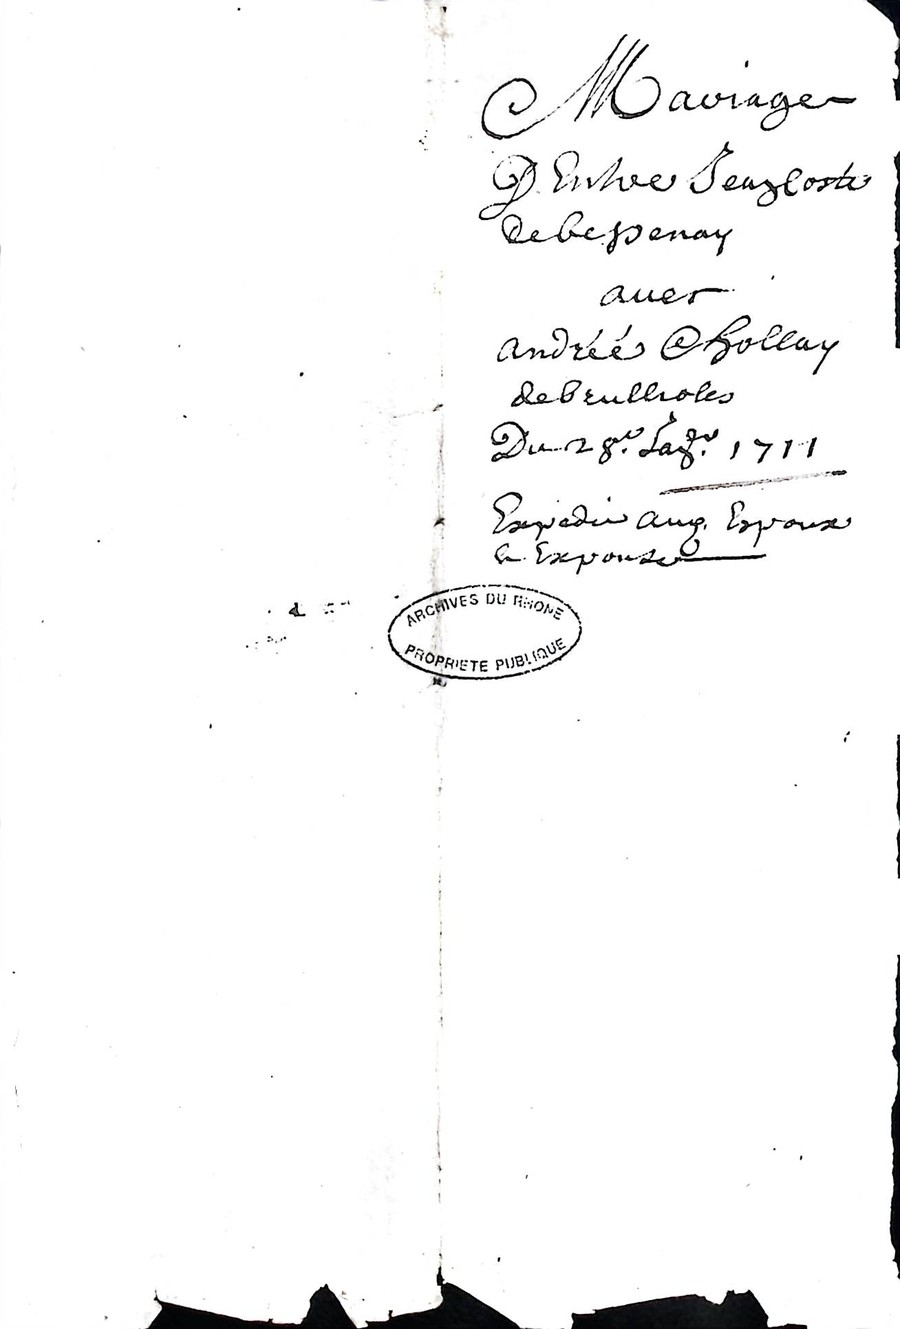 Mariage
D'Entre Jean Coste
de bessenay
avec
andréé Chollay
de brullioles
Du 28.e 1711
Expedié aux Espoux
& Expouse
ARCHIVES DU RHONE
PROPRIETE PUBLIQUE